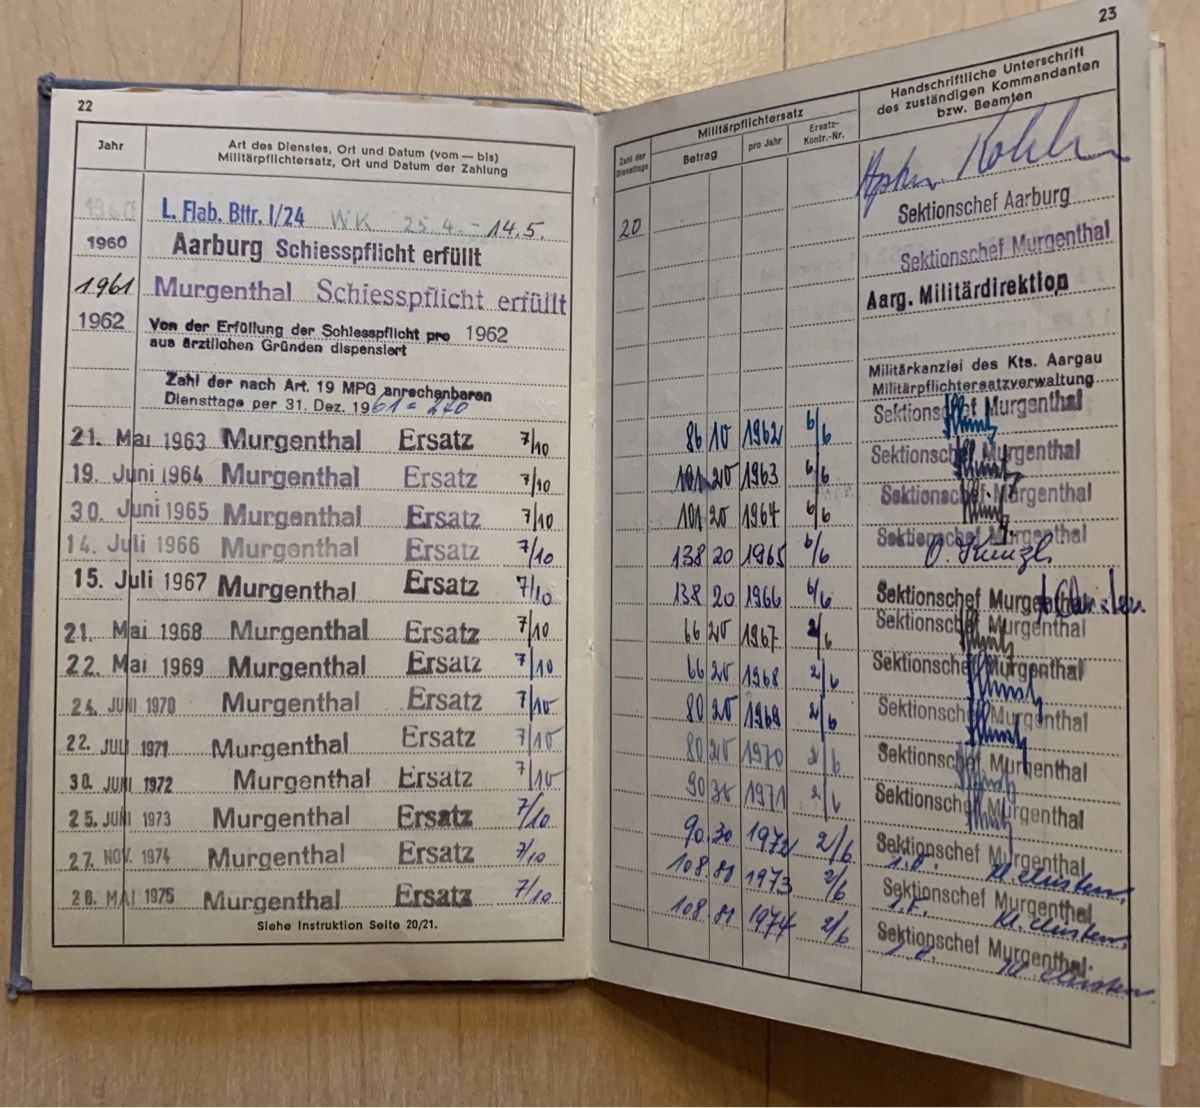 22
Jahr
Art des Dienstes, Ort und Datum (vom — bis)
Militärpflichtersatz, Ort und Datum der Zahlung
1960 L. Flab. Bttr. I/24 WK 25.4. - 14.5.
1960 Aarburg Schiesspflicht erfüllt
1961 Murgenthal Schiesspflicht erfüllt
1962 Von der Erfüllung der Schiesspflicht pro 1962
aus ärztlichen Gründen dispensiert
Zahl der nach Art. 19 MPG anrechenbaren
Diensttage per 31. Dez. 1961 = 240
21. Mai 1963 Murgenthal Ersatz 7/10
19. Juni 1964 Murgenthal Ersatz 7/10
30. Juni 1965 Murgenthal Ersatz 7/10
14. Juli 1966 Murgenthal Ersatz 7/10
15. Juli 1967 Murgenthal Ersatz 7/10
21. Mai 1968 Murgenthal Ersatz 7/10
22. Mai 1969 Murgenthal Ersatz 7/10
24. JUNI 1970 Murgenthal Ersatz 7/10
22. JULI 1971 Murgenthal Ersatz 7/10
30. JUNI 1972 Murgenthal Ersatz 7/10
25. JUNI 1973 Murgenthal Ersatz 7/10
27. NOV. 1974 Murgenthal Ersatz 7/10
28. MAI 1975 Murgenthal Ersatz 7/10
Siehe Instruktion Seite 20/21.
23
Zahl der
Diensttage
Militärpflichtersatz
Betrag
pro Jahr
Ersatz-
Kontr.-Nr.
Handschriftliche Unterschrift
des zuständigen Kommandanten
bzw. Beamten
20
Sektionschef Aarburg
Sektionschef Murgenthal
Aarg. Militärdirektion
Militärkanzlei des Kts. Aargau
Militärpflichtersatzverwaltung
86 10 1962 6/6 Sektionschef Murgenthal
101 20 1963 6/6 Sektionschef Murgenthal
101 20 1964 6/6 Sektionschef Murgenthal
138 20 1965 6/6 Sektionschef Murgenthal
138 20 1966 6/6 Sektionschef Murgenthal
66 20 1967 2/6 Sektionschef Murgenthal
66 20 1968 2/6 Sektionschef Murgenthal
80 20 1969 2/6 Sektionschef Murgenthal
80 20 1970 2/6 Sektionschef Murgenthal
90 30 1971 2/6 Sektionschef Murgenthal
90.30 1972 2/6 Sektionschef Murgenthal
108.81 1973 2/6 Sektionschef Murgenthal
108 81 1974 2/6 Sektionschef Murgenthal